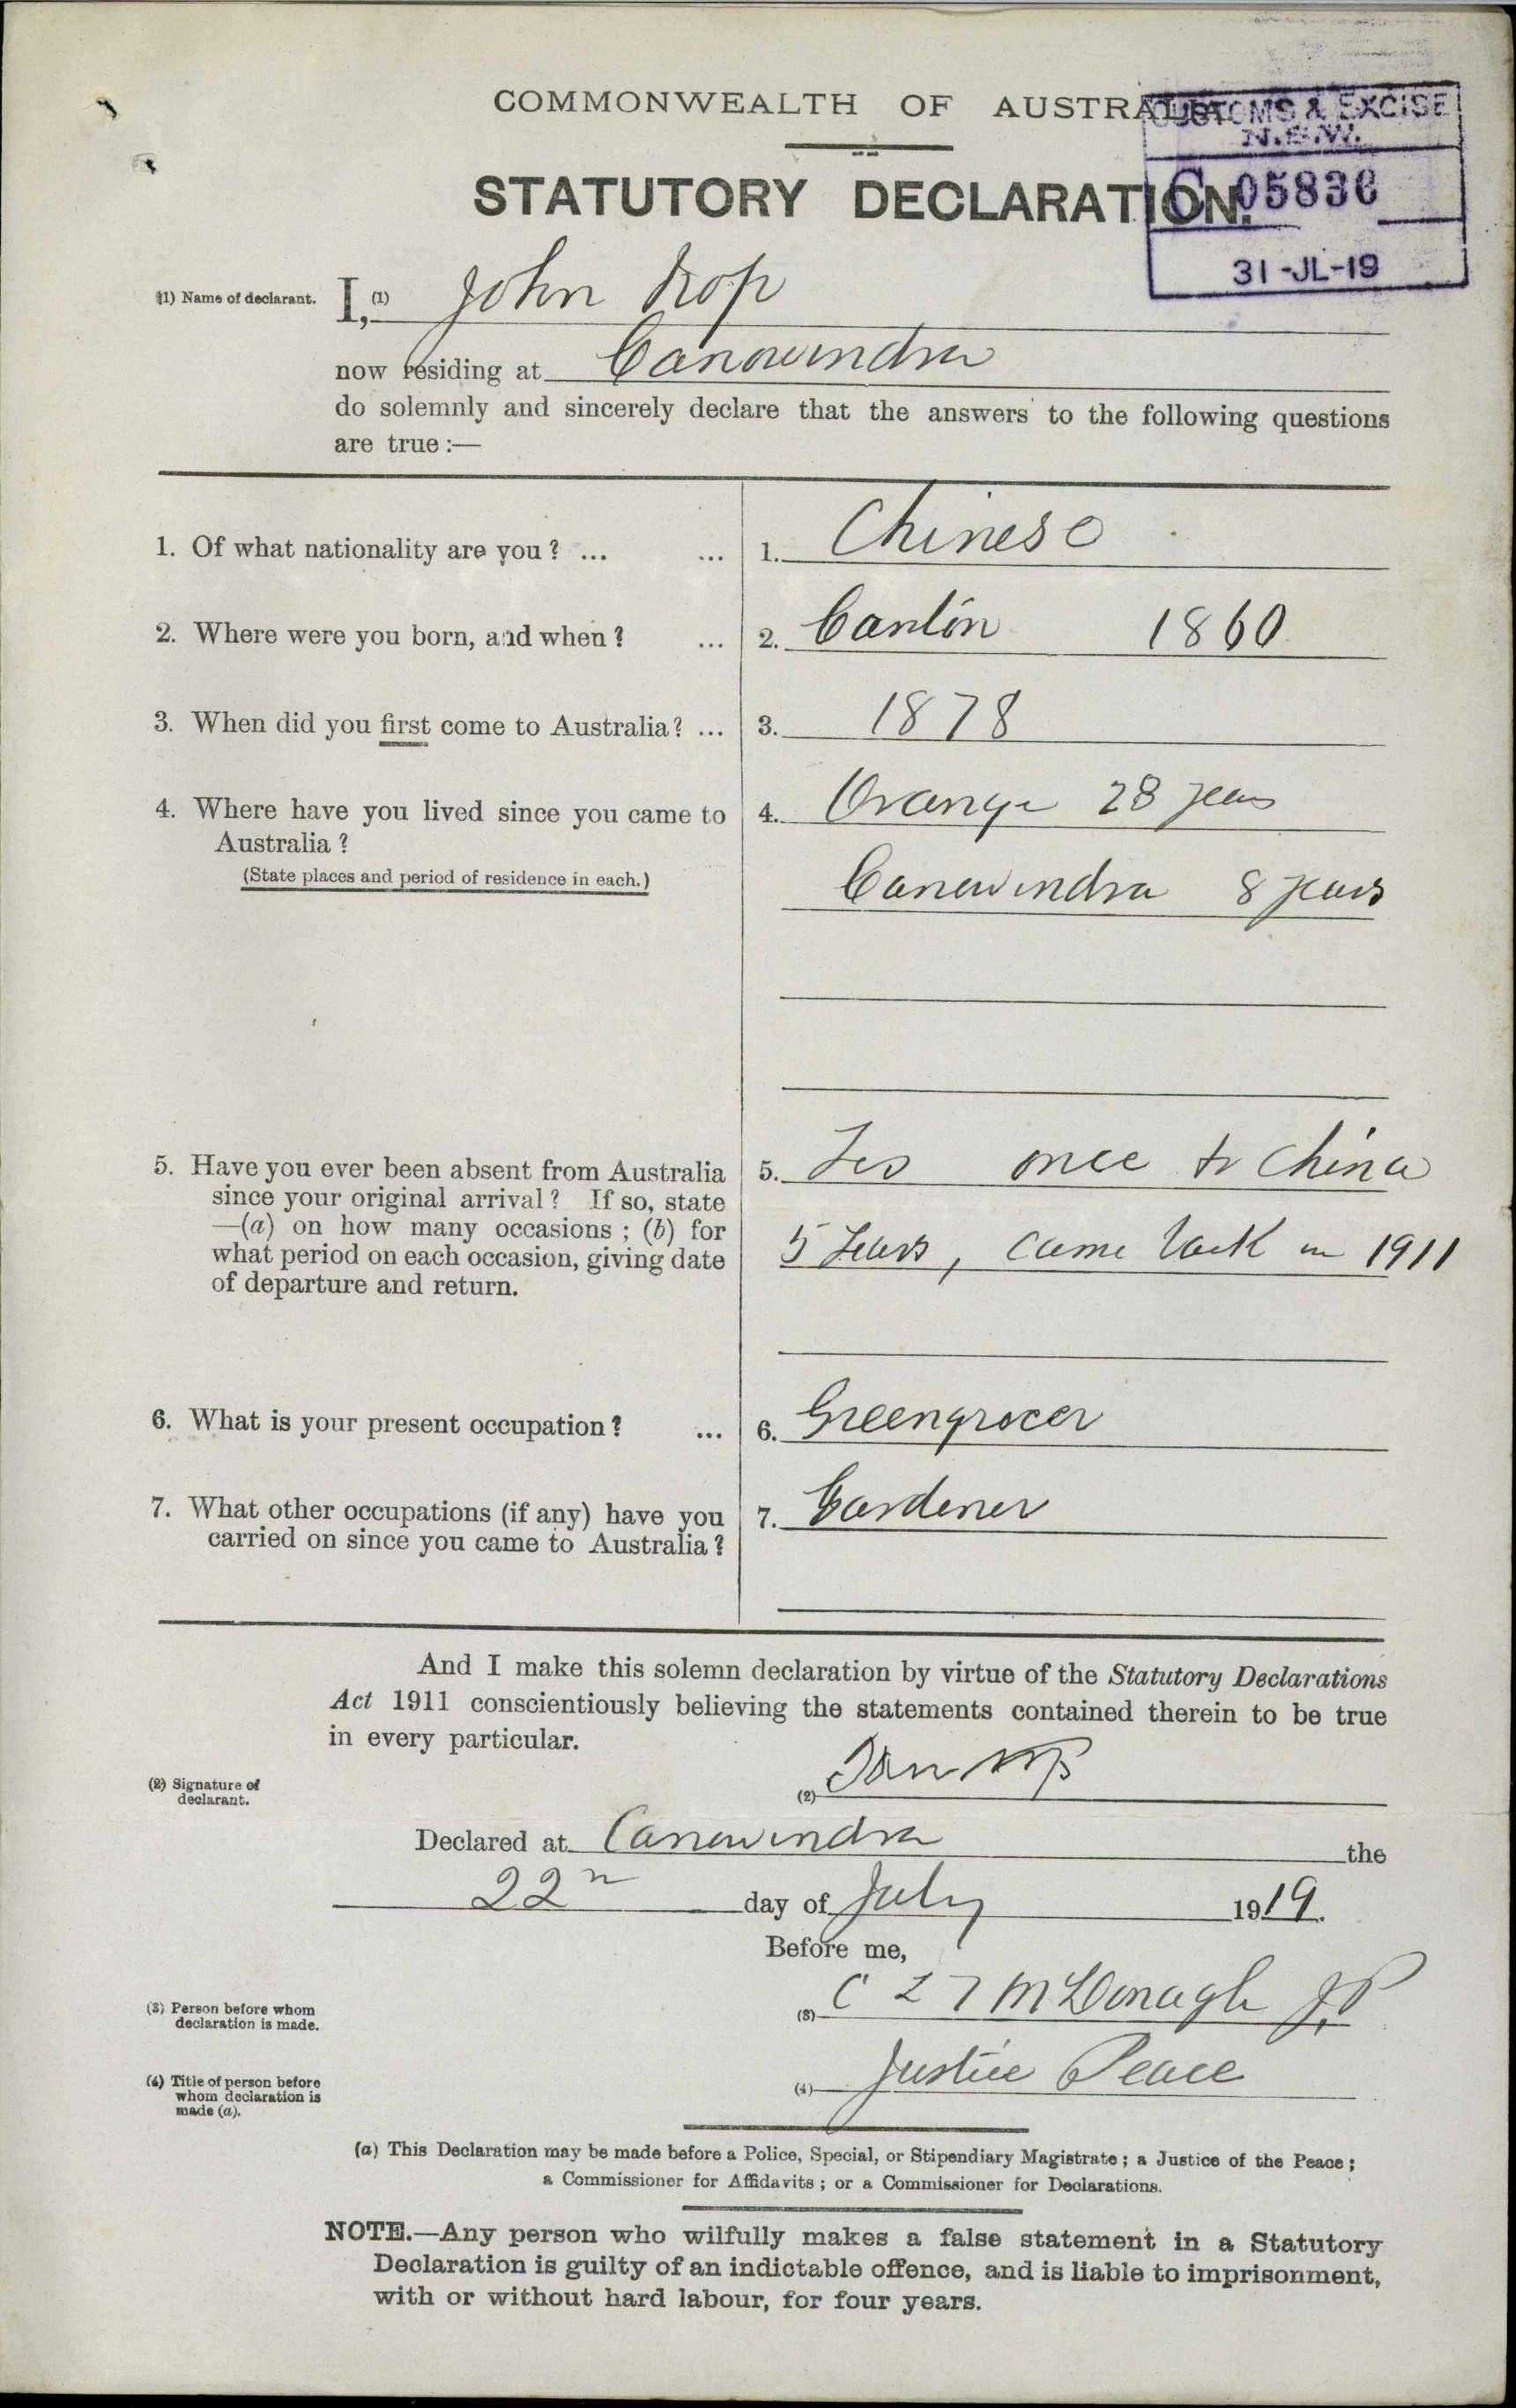 COMMONWEALTH OF AUSTRALIA
CUSTOMS & EXCISE
N.S.W.
STATUTORY DECLARATION.
C 05836
31-JL-19
(1) Name of declarant. I, (1) John Kop
now residing at Canowindra
do solemnly and sincerely declare that the answers to the following questions
are true :—
1. Of what nationality are you? ... ... 1. Chinese
2. Where were you born, and when? ... 2. Canton 1860
3. When did you first come to Australia? ... 3. 1878
4. Where have you lived since you came to 4. Orange 28 years
Australia?
(State places and period of residence in each.) Canowindra 8 years
5. Have you ever been absent from Australia 5. Yes once to China
since your original arrival? If so, state
—(a) on how many occasions; (b) for
what period on each occasion, giving date 5 Years, came back in 1911
of departure and return.
6. What is your present occupation? ... 6. Greengrocer
7. What other occupations (if any) have you 7. Gardener
carried on since you came to Australia?
And I make this solemn declaration by virtue of the Statutory Declarations
Act 1911 conscientiously believing the statements contained therein to be true
in every particular.
(2) Signature of
declarant. (2)
Declared at Canowindra the
22n day of July 1919.
Before me,
(3) Person before whom
declaration is made. (3) McDonagh J.P
(4) Title of person before
whom declaration is
made (a). (4) Justice Peace
(a) This Declaration may be made before a Police, Special, or Stipendiary Magistrate; a Justice of the Peace;
a Commissioner for Affidavits; or a Commissioner for Declarations.
NOTE.—Any person who wilfully makes a false statement in a Statutory
Declaration is guilty of an indictable offence, and is liable to imprisonment,
with or without hard labour, for four years.